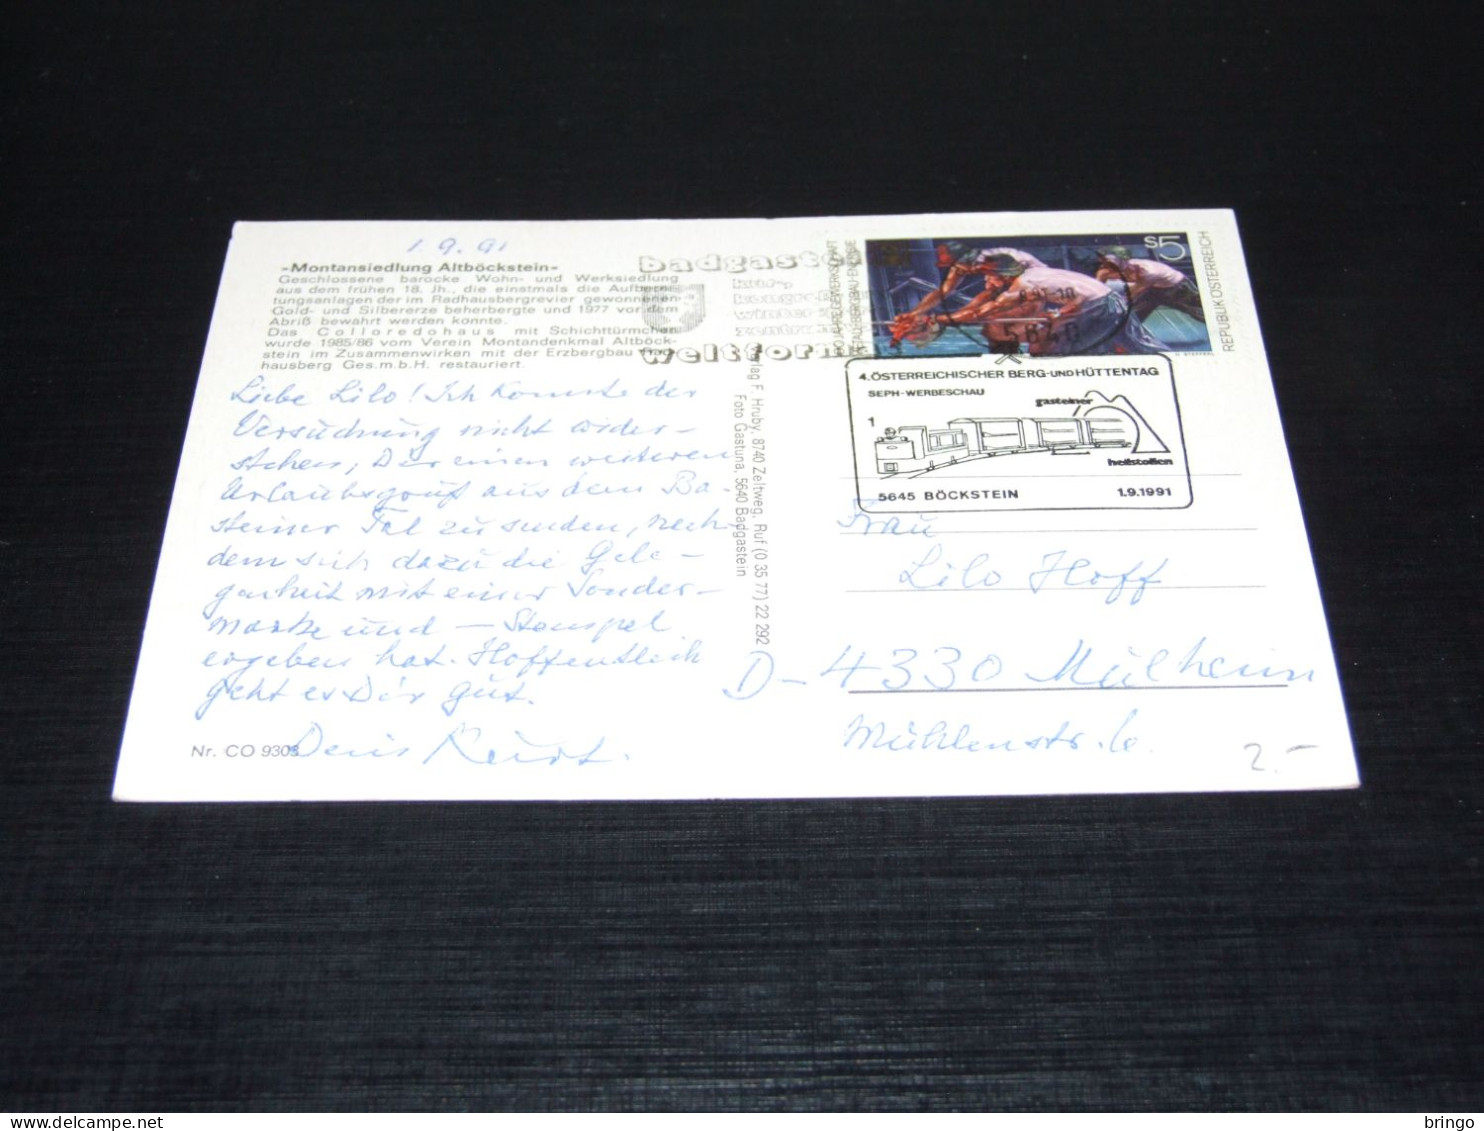 1.9.91
»Montansiedlung Altböckstein«
Geschlossene barocke Wohn- und Werksiedlung
aus dem frühen 18. Jh., die einstmals die Aufberei-
tungsanlagen der im Radhausbergrevier gewonnenen
Gold- und Silbererze beherbergte und 1977 vor dem
Abriß bewahrt werden konnte.
Das Colloredohaus mit Schichttürmchen
wurde 1985/86 vom Verein Montandenkmal Altböck-
stein im Zusammenwirken mit der Erzbergbau Rad-
hausberg Ges.m.b.H. restauriert.
Liebe Lilo! Ich konnte der
Versuchung nicht wider-
stehen, Dir einen weiteren
Urlaubsgruß aus dem Ga-
steiner Tal zu senden, nach-
dem sich dazu die Gele-
genheit mit einer Sonder-
marke und - Stempel
ergeben hat. Hoffentlich
geht es Dir gut.
Dein Kurt.
Nr. CO 9303
Verlag F. Hruby, 8740 Zeltweg, Ruf (0 35 77) 22 292
Foto Gastuna, 5640 Badgastein
badgastein
kur-,
kongreß-
wintersport
zentrum
weltform
S5
REPUBLIK ÖSTERREICH
5640
4. ÖSTERREICHISCHER BERG-UND HÜTTENTAG
SEPH-WERBESCHAU
1
gasteiner
heilstollen
5645 BÖCKSTEIN 1.9.1991
Frau
Lilo Hoff
D-4330 Mülheim
Mühlenstr. 6.
2.-
bringo